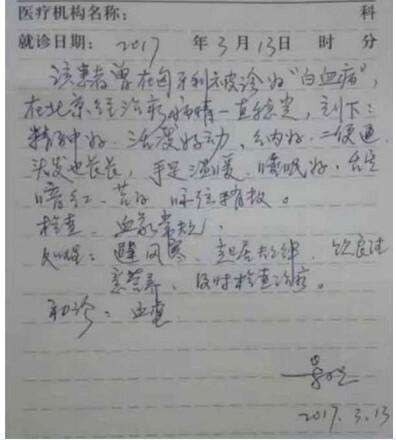 医疗机构名称： 科
就诊日期： 2017 年 3 月 13 日 时 分
该患者曾在匈牙利被诊为"白血病"，
在北京经治疗病情一直稳定，刻下：
精神好、活泼好动、纳好、二便通
头发也长长，手足温暖、睡眠好、舌
暗红、苔
检查、血象常规
处理：避风寒、起居规律、饮食注
意营养、及时检查治疗。
初诊：血虚
2017.3.13